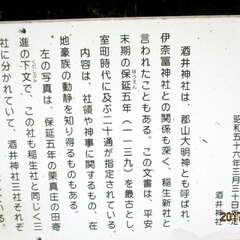 昭和五十六年三月三十日指定
酒井神社
酒井神社は、郡山大明神とも呼ばれ、
伊奈冨神社との関係も深く、稲生新社と
言われたこともある。この文書は、平安
末期の保延五年(一一三九)を最古とし、
ほうえん
室町時代に及ぶ二十通が指定されている。
内容は、社領や神事に関するもの、在
地豪族の動静を知り得るものもある。
左の写真は、保延五年の栗真庄の田寄
進の下文で、この社も稲生社と同じく三
くだしぶみ
社に分かれていて 酒井神社三社それぞ
201